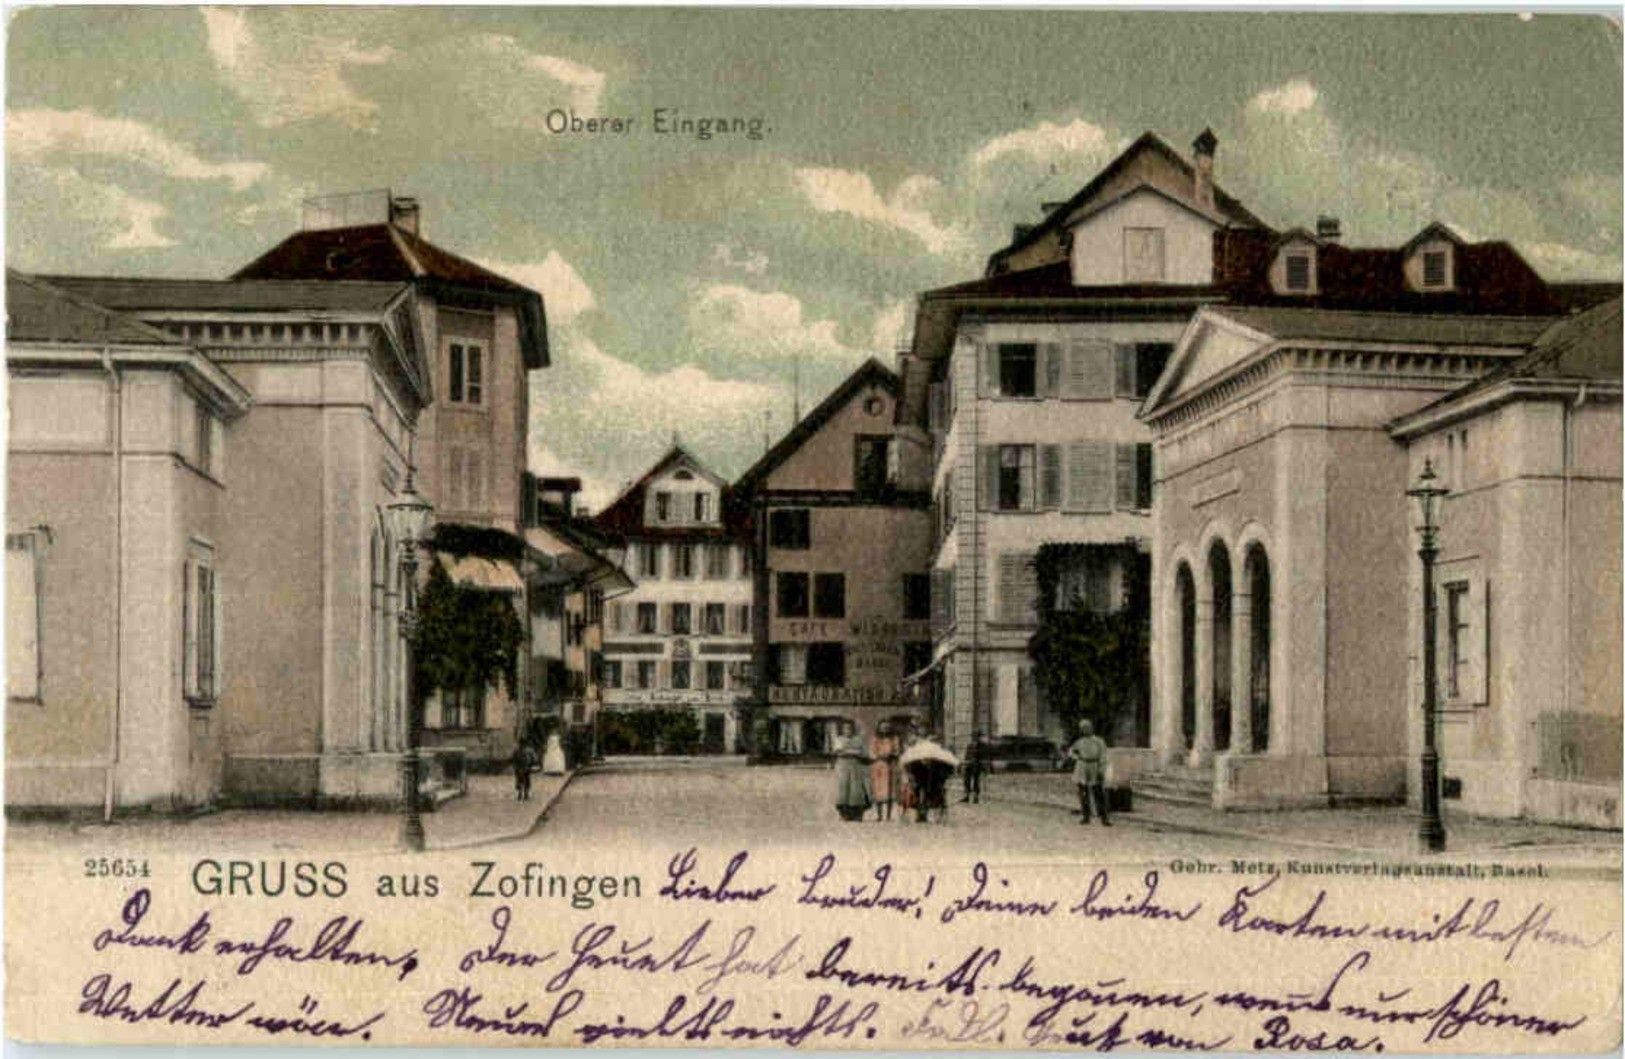 Oberer Eingang.
CAFÉ
RESTAURATION
25654
GRUSS aus Zofingen
Gebr. Metz, Kunstverlagsanstalt, Basel.
Lieber Bruder! Deine beiden Karten mit bestem
Dank erhalten. Der Heuet hat bereits begonnen, wenns nur schöner
Wetter wäre. Neues gibts nichts. Frdl. Gruß von Rosa.